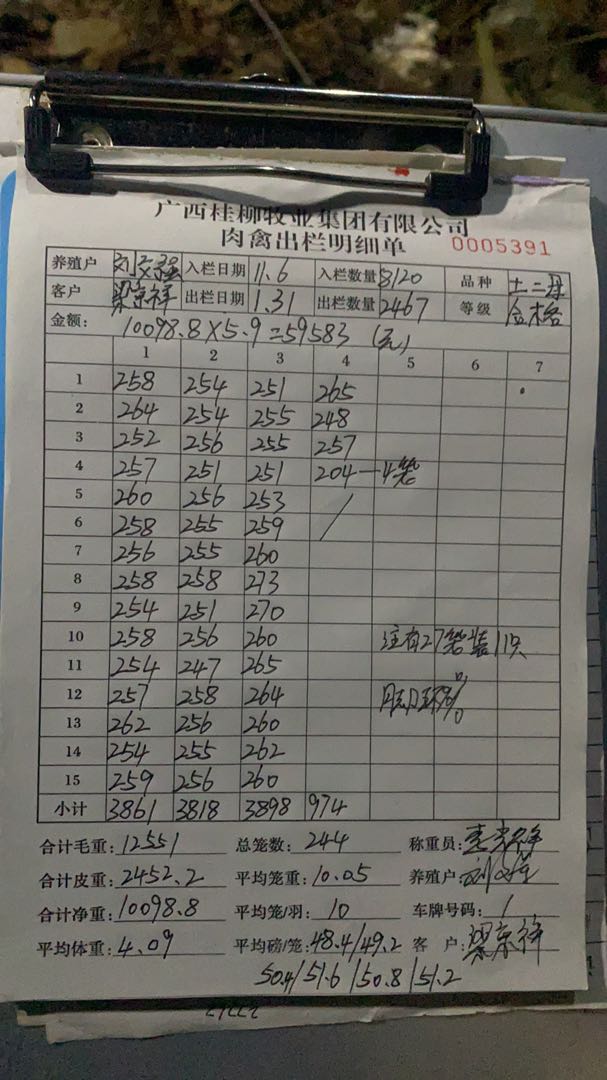 广西桂柳牧业集团有限公司
肉禽出栏明细单 0005391
养殖户 刘文强 入栏日期 11.6 入栏数量 8120 品种 土二母
客户 梁京祥 出栏日期 1.31 出栏数量 2467 等级 合格
金额: 10098.8×5.9=59583 (元)
1 2 3 4 5 6 7
1 258 254 251 265
2 264 254 255 248
3 252 256 255 257
4 257 251 251 204—4笼
5 260 256 253 /
6 258 255 259 /
7 256 255 260
8 258 258 273
9 254 251 270
10 258 256 260 注有27笼装11只
11 254 247 265
12 257 258 264
13 262 256 260
14 254 255 262
15 259 256 260
小计 3861 3818 3898 974
合计毛重: 12551 总笼数: 244 称重员:
合计皮重: 2452.2 平均笼重: 10.05 养殖户: 刘文强
合计净重: 10098.8 平均笼/羽: 10 车牌号码: 1
平均体重: 4.09 平均磅/笼: 48.4/49.2 客户: 梁京祥
50.4/51.6/50.8/51.2